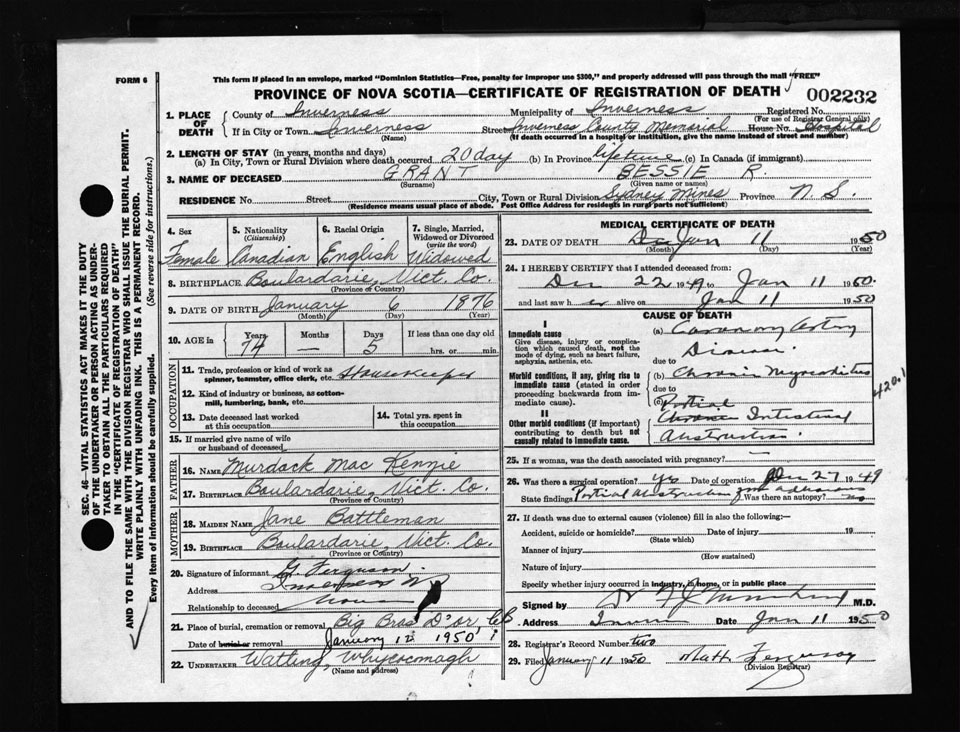 FORM 6
This form if placed in an envelope, marked "Dominion Statistics—Free, penalty for improper use $300," and properly addressed will pass through the mail "FREE"
PROVINCE OF NOVA SCOTIA—CERTIFICATE OF REGISTRATION OF DEATH
002232
1. PLACE OF DEATH County of Inverness Municipality of Inverness Registered No.
(For use of Registrar General only)
If in City or Town Inverness Street Inverness County Memorial House No. Hospital
(Name) (If death occurred in a hospital or institution, give the name instead of street and number)
2. LENGTH OF STAY (in years, months and days)
(a) In City, Town or Rural Division where death occurred 20 day (b) In Province lifetime (c) In Canada (if immigrant)
3. NAME OF DECEASED GRANT BESSIE R.
(Surname) (Given name or names)
RESIDENCE No. Street City, Town or Rural Division Sydney Mines Province N S.
(Residence means usual place of abode. Post Office Address for residents in rural parts not sufficient)
4. Sex Female
5. Nationality (Citizenship) Canadian
6. Racial Origin English
7. Single, Married, Widowed or Divorced (write the word) Widowed
8. BIRTHPLACE Boulardarie, Vict. Co.
(Province or Country)
9. DATE OF BIRTH January 6 1876
(Month) (Day) (Year)
10. AGE in Years 74 Months — Days 5 If less than one day old
hrs. or min.
OCCUPATION
11. Trade, profession or kind of work as spinner, teamster, office clerk, etc. Housekeeper
12. Kind of industry or business, as cotton-mill, lumbering, bank, etc.
13. Date deceased last worked at this occupation
14. Total yrs. spent in this occupation
15. If married give name of wife or husband of deceased
FATHER
16. NAME Murdock Mac Kenzie
17. BIRTHPLACE Boulardarie, Vict. Co.
(Province or Country)
MOTHER
18. MAIDEN NAME Jane Battleman
19. BIRTHPLACE Boulardarie, Vict. Co.
(Province or Country)
20. Signature of informant G. Ferguson
Address Inverness
Relationship to deceased
21. Place of burial, cremation or removal Big Bras D'or, CB
Date of burial or removal January 12 1950
22. UNDERTAKER Watling, Whycocomagh
(Name and address)
MEDICAL CERTIFICATE OF DEATH
23. DATE OF DEATH Jan 11 1950
(Month) (Day) (Year)
24. I HEREBY CERTIFY that I attended deceased from:
Dec 22 1949 to Jan 11 1950.
and last saw h er alive on Jan 11 1950
CAUSE OF DEATH
I
Immediate cause
Give disease, injury or complication which caused death, not the mode of dying, such as heart failure, asphyxia, asthenia, etc.
(a) Coronary Artery Disease.
due to
Morbid conditions, if any, giving rise to immediate cause (stated in order proceeding backwards from immediate cause).
(b) Chronic Myocarditis
due to
(c) Partial
II
Other morbid conditions (if important) contributing to death but not causally related to immediate cause.
Chronic Intestinal Obstruction.
420.1
25. If a woman, was the death associated with pregnancy? —
26. Was there a surgical operation? Yes Date of operation Dec 27 1949
State findings Partial Obstruction Was there an autopsy? no
27. If death was due to external causes (violence) fill in also the following:—
Accident, suicide or homicide? Date of injury 19
(State which)
Manner of injury
(How sustained)
Nature of injury
Specify whether injury occurred in industry, in home, or in public place
Signed by Dr M.D.
Address Inver Date Jan 11 1950
28. Registrar's Record Number two
29. Filed January 11 1950 Matt Ferguson
(Division Registrar)
SEC. 46—VITAL STATISTICS ACT MAKES IT THE DUTY OF THE UNDERTAKER OR PERSON ACTING AS UNDERTAKER TO OBTAIN ALL THE PARTICULARS REQUIRED IN THE "CERTIFICATE OF REGISTRATION OF DEATH" AND TO FILE THE SAME WITH THE DIVISION REGISTRAR WHO SHALL ISSUE THE BURIAL PERMIT.
WRITE PLAINLY WITH UNFADING INK. THIS IS A PERMANENT RECORD.
Every item of information should be carefully supplied. (See reverse side for instructions.)